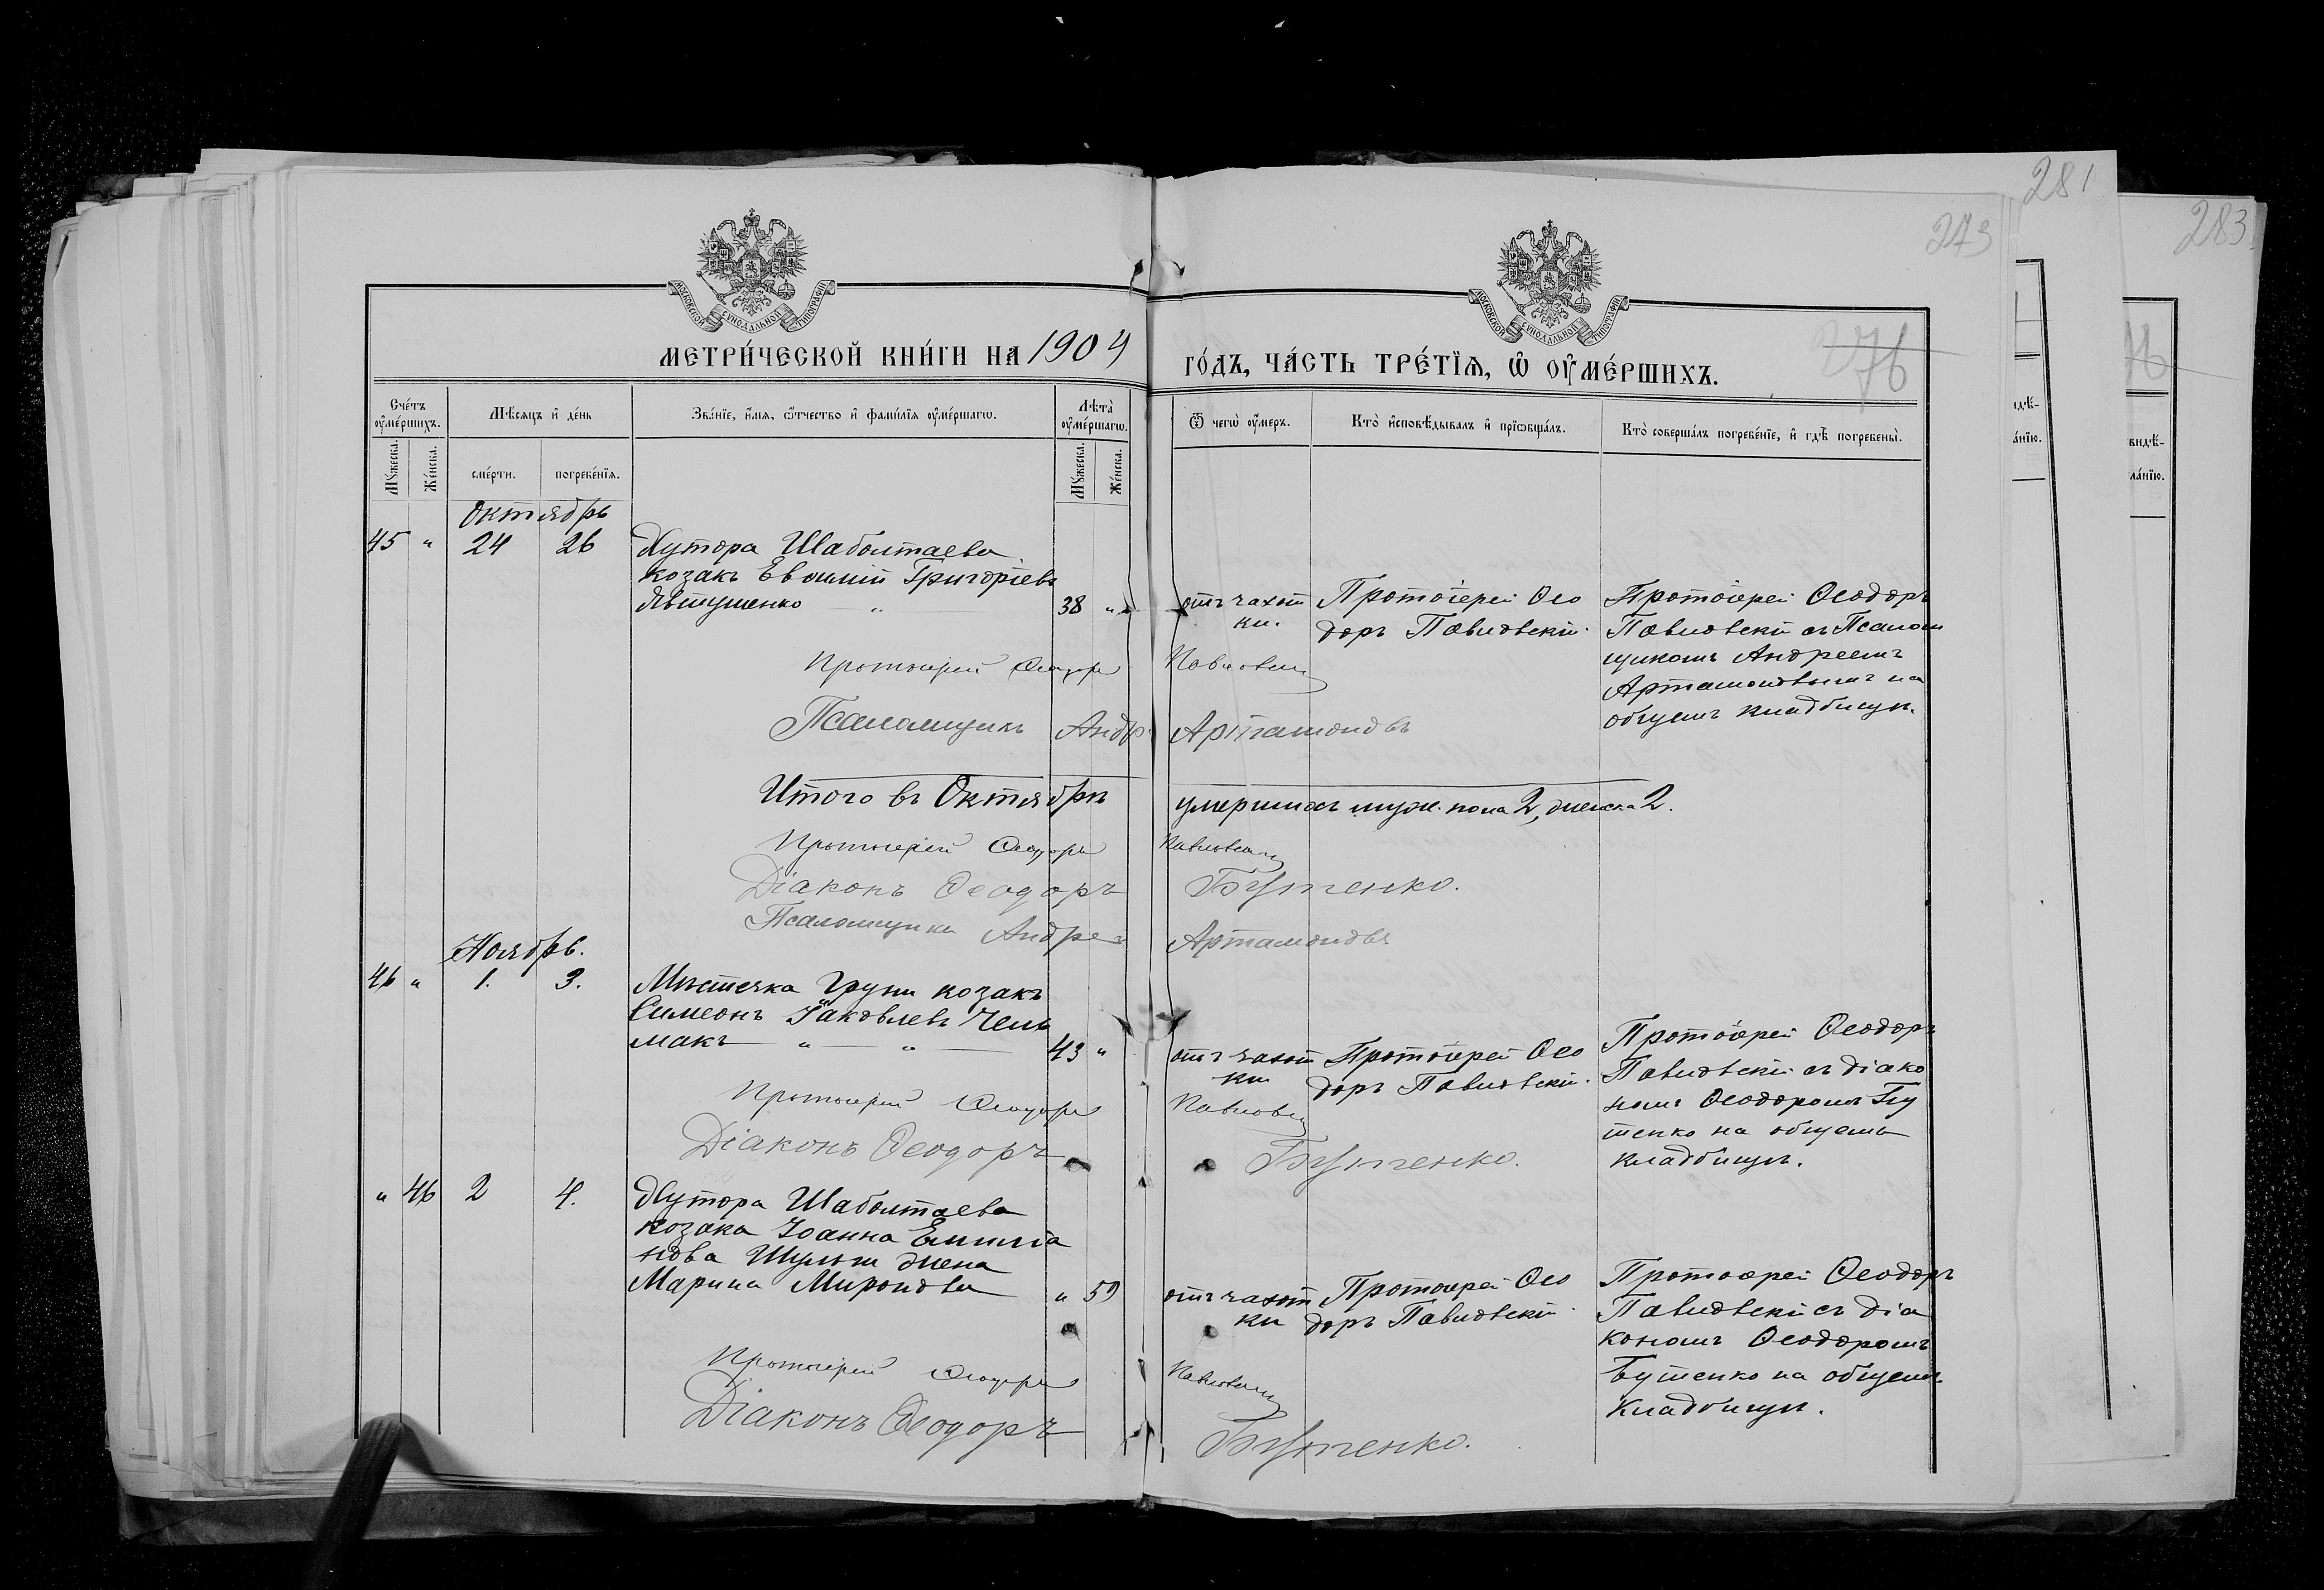 281
283
273
276
МОСКОВСКОЙ СѴНОДАЛЬНОЙ ТИПОГРАФІИ
МОСКОВСКОЙ СѴНОДАЛЬНОЙ ТИПОГРАФІИ
МЕТРИ́ЧЕСКОЙ КНИ́ГИ НА 1904
ГО́ДЪ, ЧА́СТЬ ТРЕ́ТІѦ, Ѡ҆ ОУ҆МЕ́РШИХЪ.
Сче́тъ оу҆ме́ршихъ.
Мѣ́сяцъ и҆ де́нь
Зва́нїе, и҆́мя, ѻ҆́тчество и҆ фами́лїя оу҆ме́ршагѡ.
Лѣта̀ оу҆ме́ршагѡ.
Ѿ чегѡ̀ оу҆́меръ.
Кто̀ и҆сповѣ́дывалъ и҆ прїѡбща́лъ.
Кто̀ соверша́лъ погребе́нїе, и҆ гдѣ̀ погребены̀.
Мꙋ́жеска.
Же́нска.
сме́рти.
погребе́нїя.
Мꙋ́жеска.
Же́нска.
Октябрь
45 " 24 26 Хутора Шаболтаева
козакъ Евѳимій Григоріевъ
Явтушенко " 38 "
отъ чахот
ки.
Протоіерей Ѳео
доръ Павловскій.
Протоіерей Ѳеодоръ
Павловскій съ Псалом
щикомъ Андреемъ
Артамоновымъ на
общемъ кладбищѣ.
Протоіерей Ѳеодоръ Павловскій
Псаломщикъ Андр. Артамоновъ
Итого въ Октябрѣ умершихъ муж. пола 2, женска 2.
Протоіерей Ѳеодоръ Павловскій
Діаконъ Ѳеодоръ Бутенко.
Псаломщикъ Андрей Артамоновъ
Ноябрь.
46 " 1. 3. Мѣстечка Груни козакъ
Симеонъ Іаковлевъ Чель
макъ " " 43 "
отъ чахот
ки
Протоіерей Ѳео
доръ Павловскій.
Протоіерей Ѳеодоръ
Павловскій съ діако
номъ Ѳеодоромъ Бу
тенко на общемъ
кладбищѣ.
Протоіерей Ѳеодоръ Павловскій
Діаконъ Ѳеодоръ Бутенко.
" 46 2 4. Хутора Шаболтаева
козака Іоанна Емиліа
нова Шульги жена
Марина Миронова " 59
отъ чахот
ки
Протоіерей Ѳео
доръ Павловскій.
Протоіерей Ѳеодоръ
Павловскій съ діа
кономъ Ѳеодоромъ
Бутенко на общемъ
кладбищѣ.
Протоіерей Ѳеодоръ Павловскій
Діаконъ Ѳеодоръ Бутенко.